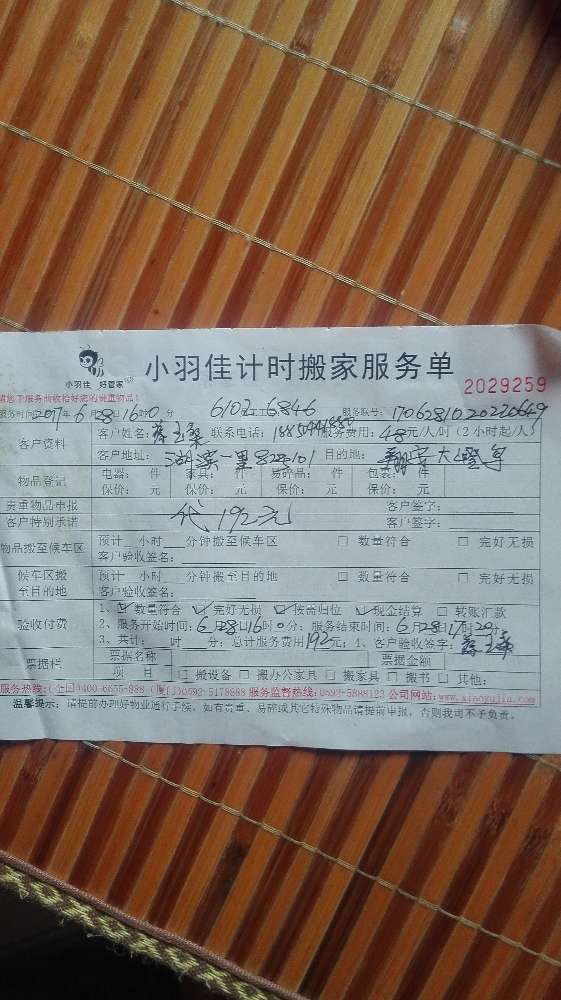 小羽佳 好管家
小羽佳计时搬家服务单
2029259
请您于服务前收拾好您的贵重物品!
服务时间2017年6月28日16时0分 6102 工 6846 服务账号: 1706281020220649
客户资料 客户姓名: 联系电话: 服务费用: 48元/人/时 (2小时起/人)
客户地址: 湖滨一里82号101 目的地: 翔安大嶝
物品登记 电器: 件 家具: 件 易碎品: 件 包装: 件
保价: 元 保价: 元 保价: 元 保价: 元
贵重物品申报 客户签字:
客户特别承诺 代192元 客户签字:
物品搬至候车区 预计 小时 分钟搬至候车区 □ 数量符合 □ 完好无损
客户验收签名:
候车区搬至目的地 预计 小时 分钟搬至目的地 □ 数量符合 □ 完好无损
客户验收签名:
验收付费 1、☑ 数量符合 ☑ 完好无损 ☑ 按需归位 ☑ 现金结算 □ 转账汇款
2、服务开始时间: 6月28日16时0分; 服务结束时间: 6月28日17时20分
3、共计: 时 分; 总计服务费用192元; 1、客户验收签字:
票据栏 票据名称 票据金额
项目 □ 搬设备 □ 搬办公家具 □ 搬家具 □ 搬书 □ 其他:
服务热线: (全国)0400-6655-888 (厦门)0592-5178888 服务监督热线:0592-5888123 公司网站:www.xiaoyujia.com
温馨提示: 请提前办理好物业通行手续, 如有贵重、易碎或其它特殊物品请提前申报, 否则我司不予负责。